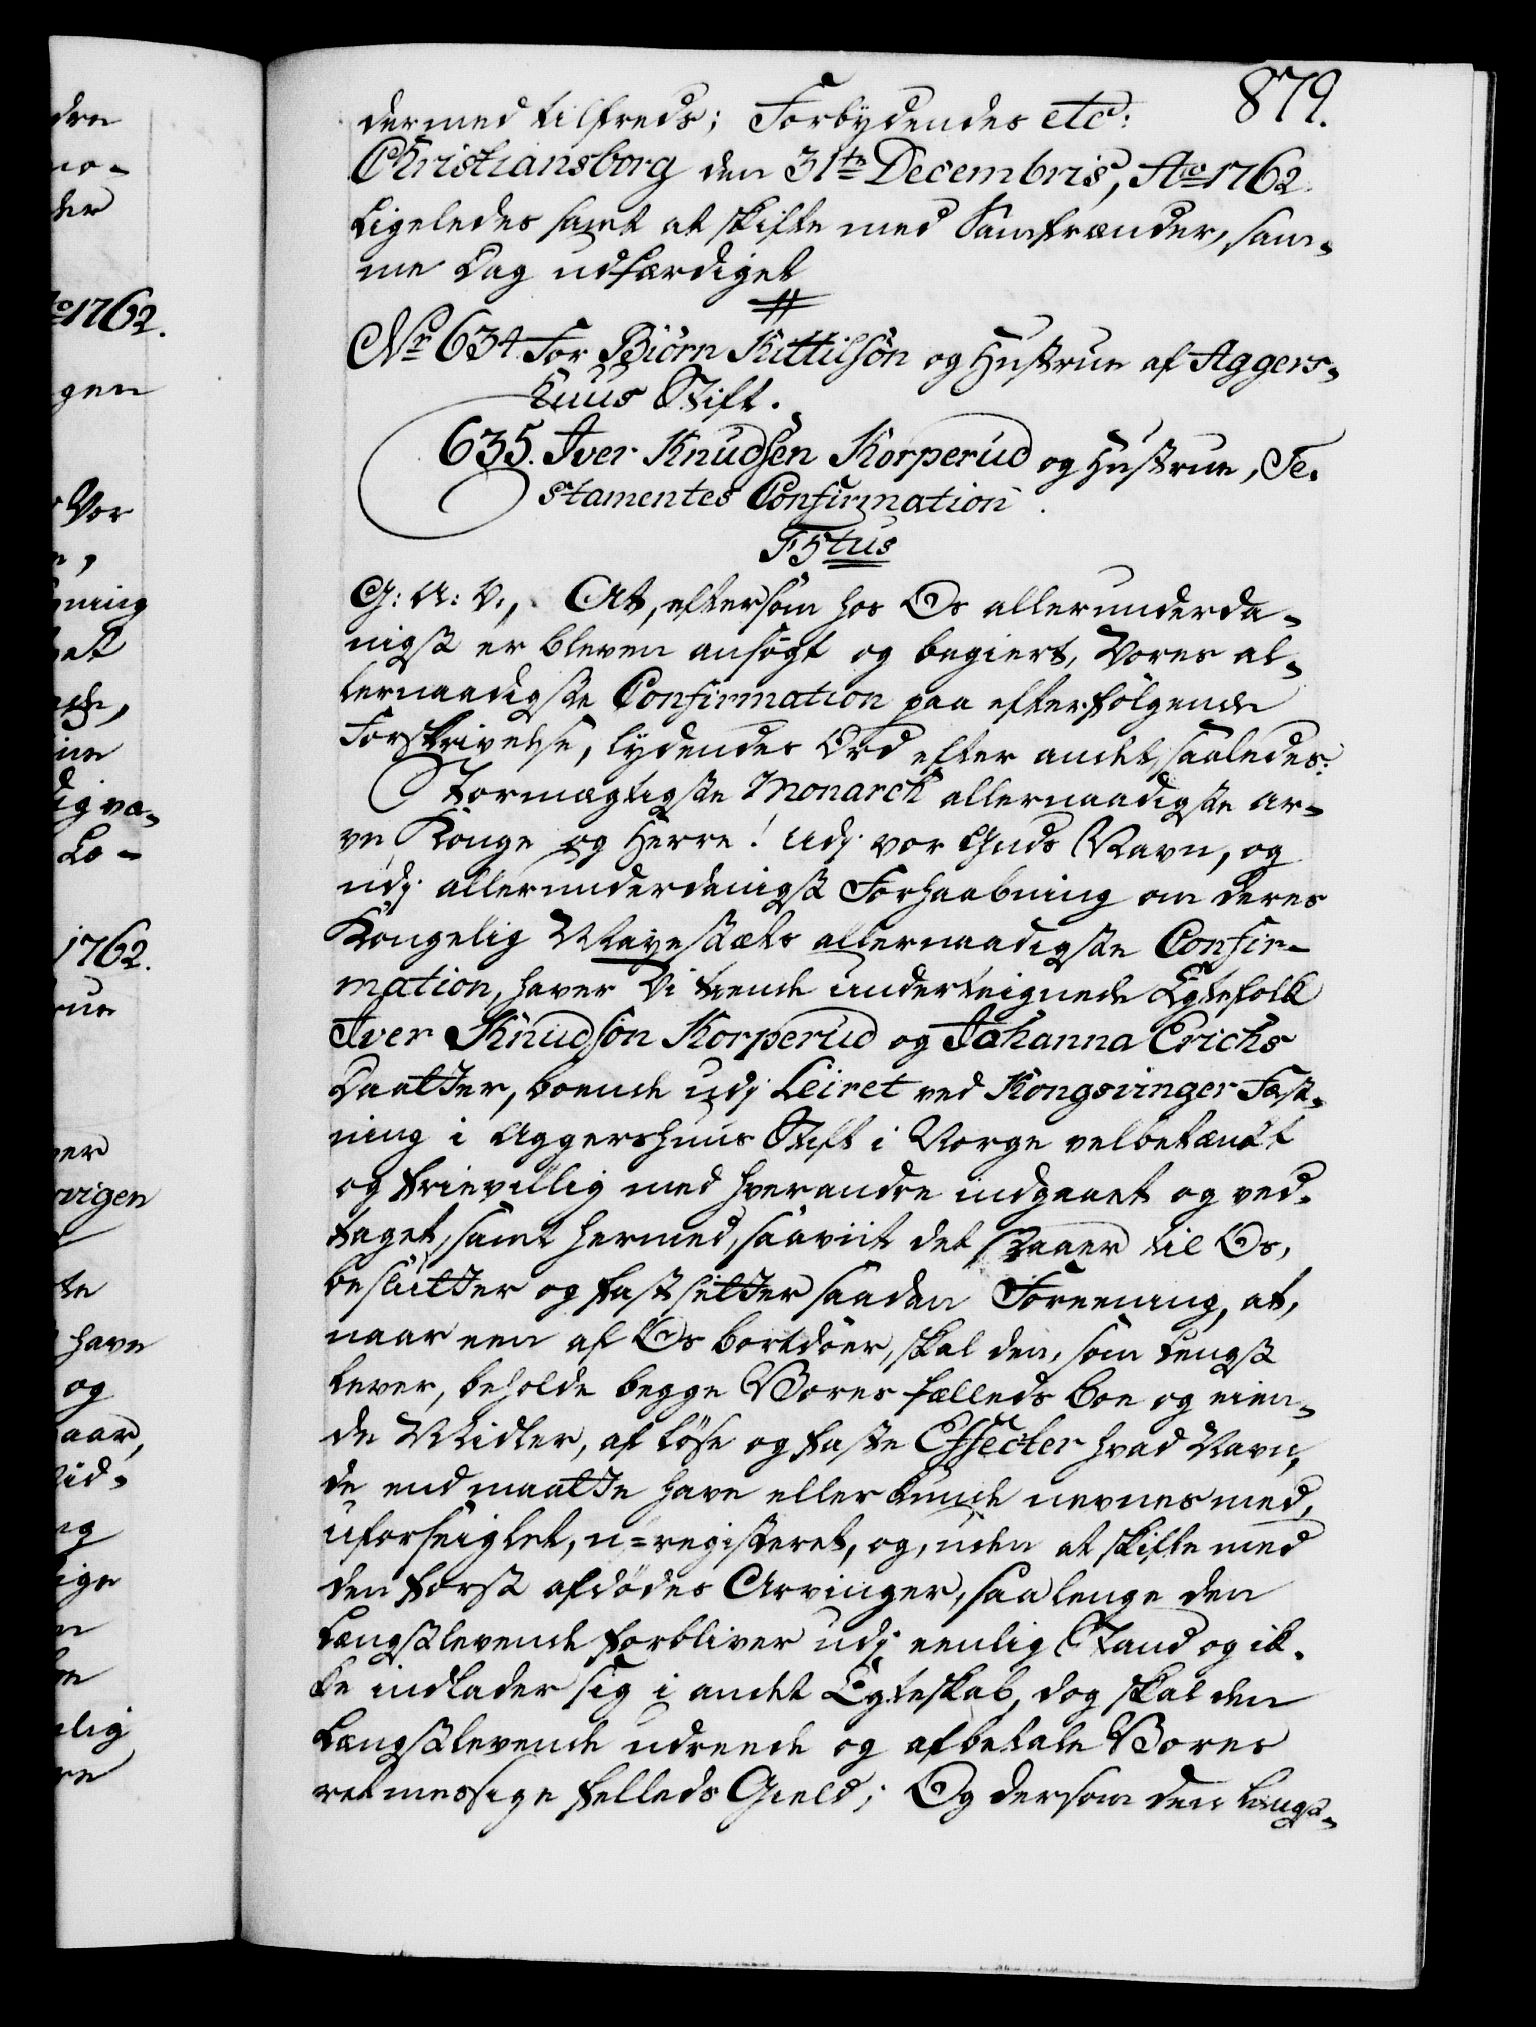 879.
dermed tilfreds; Forbydendes etc:
Christiansborg den 31te Decembris, Ao 1762.
Ligeledes samt at skifte med Samfrænder, sam-
me Dag udfærdiget
Nr. 634. For Biörn Kittilsön og Hustrue af Aggers-
huus Stift.
635. Iver Knudsen Korperud og Hustrue, Te-
stamentes Confirmation.
F5tus
G: A: V:, At, eftersom hos Os allerunderda-
nigst er bleven ansögt og begiert, Vores al-
lernaadigste Confirmation paa efterfölgende
Forskrivelse, lydendes Ord efter andet, saaledes:
Stormægtigste Monarch allernaadigste Ar-
ve Konge og Herre! Udj vor Guds Navn, og
udj allerunderdanigst Forhaabning om deres
Kongelig Mayestæts allernaadigste Confir-
mation, haver Vi tvende underteignede Egtefolk
Iver Knudsön Korperud og Johanna Erichs
Daatter, boende udj Leiret ved Kongsvinger Fæst-
ning i Aggershuus Stift i Norge velbetænkt
og frievillig med hverandre indgaaet og ved-
taget, samt hermed, saaviit det staaer til Os,
beslutter og fastsetter saadan Foreening, at,
naar een af Os bortdöer, skal den, som længst
lever, beholde begge Vores fælleds Boe og eien-
de Midler, af löse og faste Effecter hvad Navn,
de end maatte have eller kunde nevnes med,
uforseiglet, u-registeret, og, uden at skifte med
den först afdödes Arvinger, saa lenge den
Længstlevende forbliver udj eenlig Stand og ik-
ke indlader sig i andet Egteskab, dog skal den
Længstlevende udreede og afbetale Vores
retmessige felleds Gield; Og dersom den Længst-